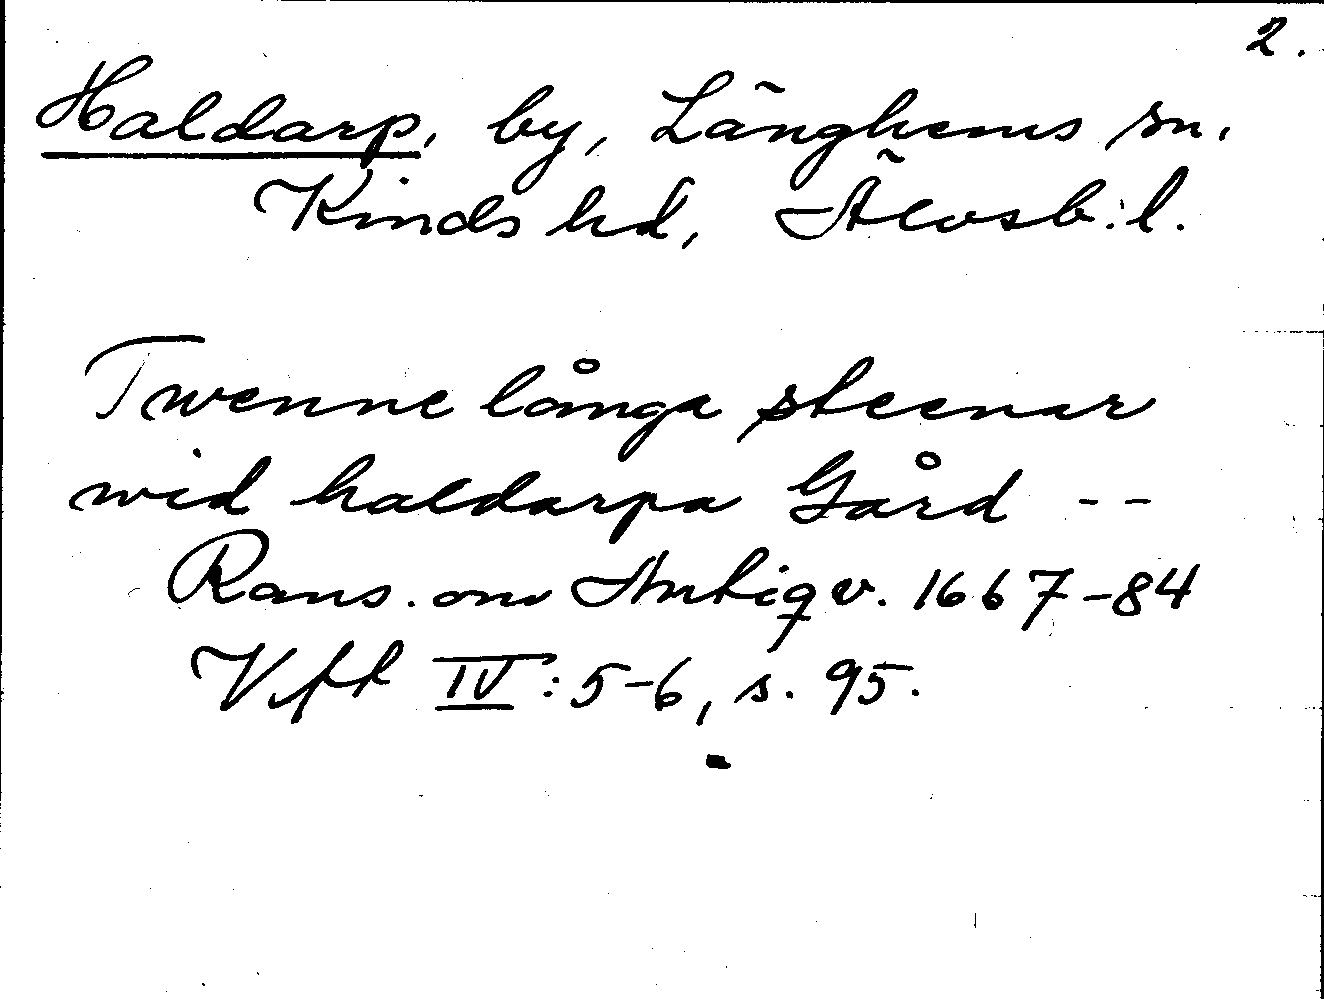 2.
Haldarp, by, Länghems sn.
Kinds hd, Älvsb. l.
Twenne långa steenar
wid haldarpa Gård --
Rans. om Antiqv. 1667-84
Vft IV: 5-6, s. 95.